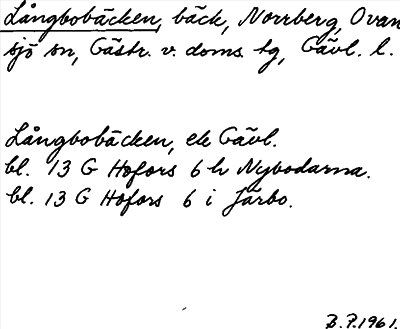 Långbobäcken, bäck, Norrberg, Ovan
sjö sn, Gästr. v. doms. tg, Gävl. l.
Långbobäcken, ek Gävl.
bl. 13 G Hofors 6 h Nybodarna.
bl. 13 G Hofors 6 i Järbo.
B.P. 1961.